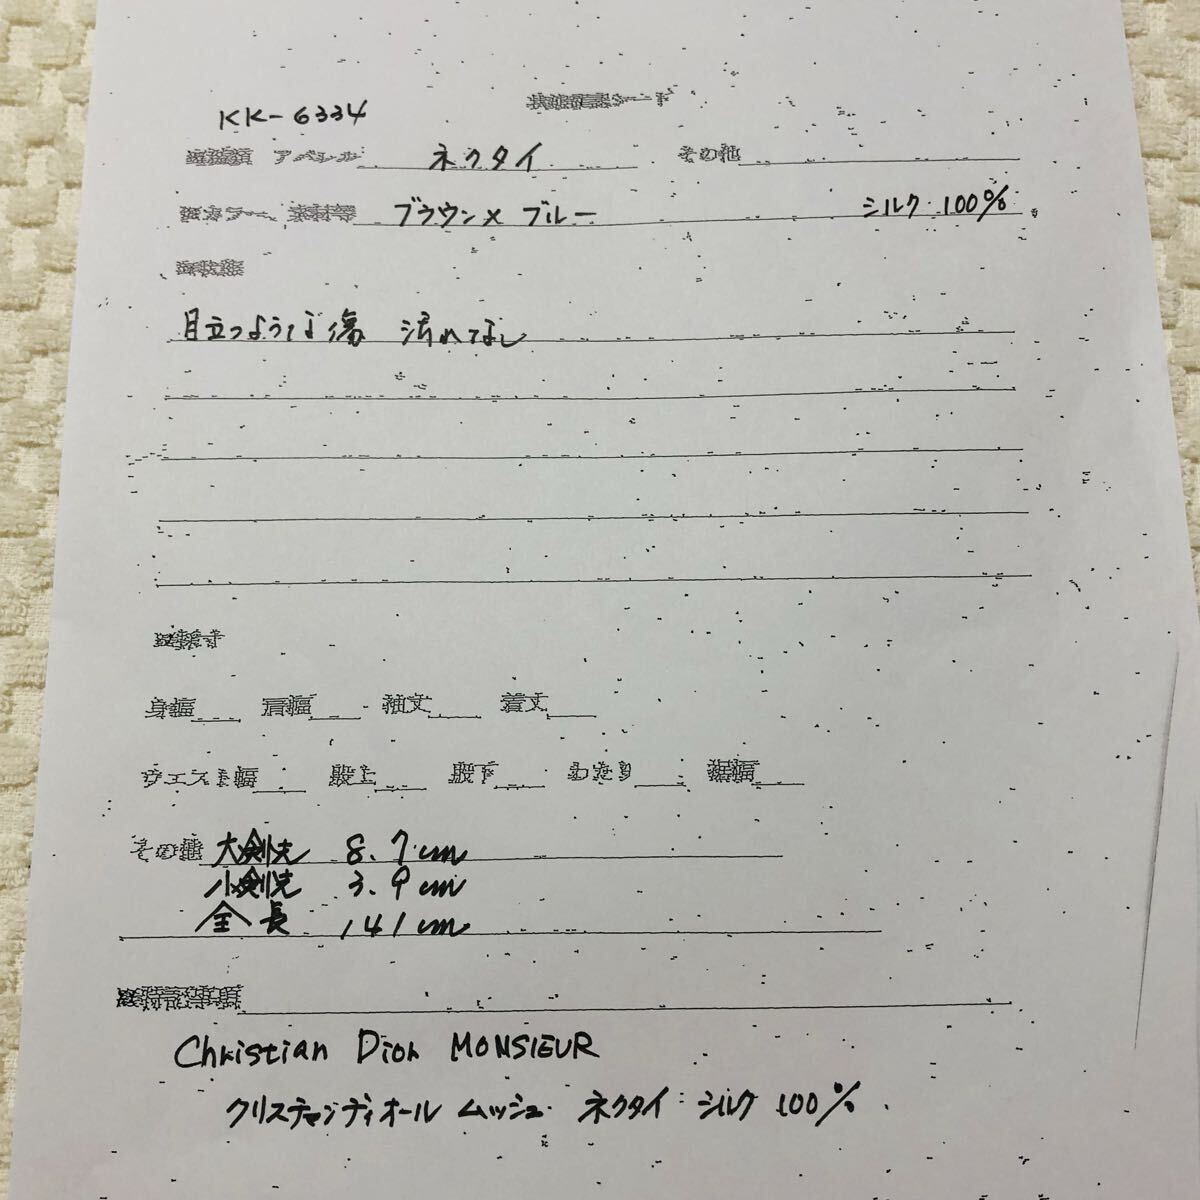 KK-6334
アパレル ネクタイ その他
カラー、素材等 ブラウン×ブルー シルク 100%
目立つような傷 汚れなし
身幅 肩幅 袖丈 着丈
ウエスト幅 股上 股下 わたり 裾幅
その他 大剣先 8.7cm
小剣先 3.9cm
全長 141cm
※特記事項
Christian Dior MONSIEUR
クリスチャンディオール ムッシュ ネクタイ シルク 100%